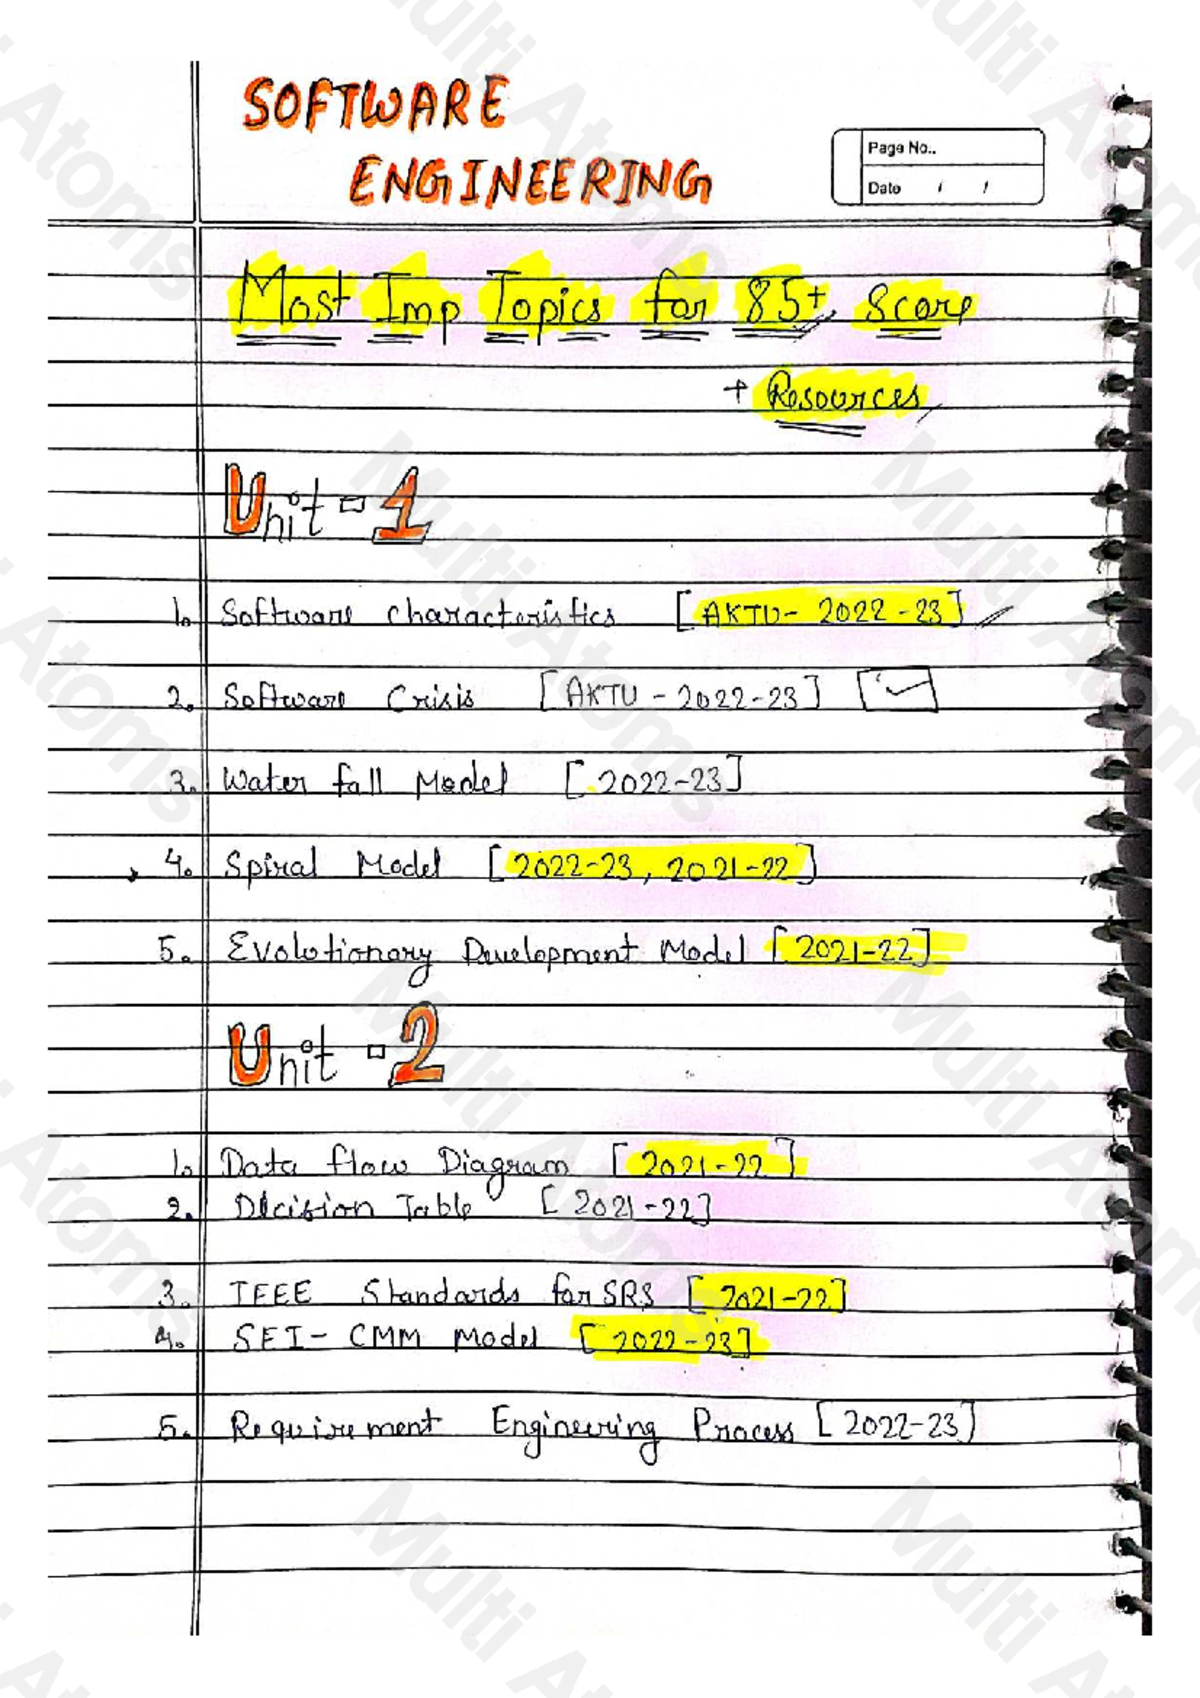 SOFTWARE
ENGINEERING
Page No..
Date / /
Most Imp Topics for 85+ Score
+ Resources
Unit - 1
1. Software characteristics [AKTU- 2022-23]
2. Software Crisis [AKTU - 2022-23]
3. Water fall Model [2022-23]
4. Spiral Model [2022-23, 2021-22]
5. Evolutionary Development Model [2021-22]
Unit - 2
1. Data flow Diagram [2021-22]
2. Decision Table [2021-22]
3. IEEE Standards for SRS [2021-22]
4. SEI- CMM Model [2022-23]
5. Requirement Engineering Process [2022-23]
Multi Atoms